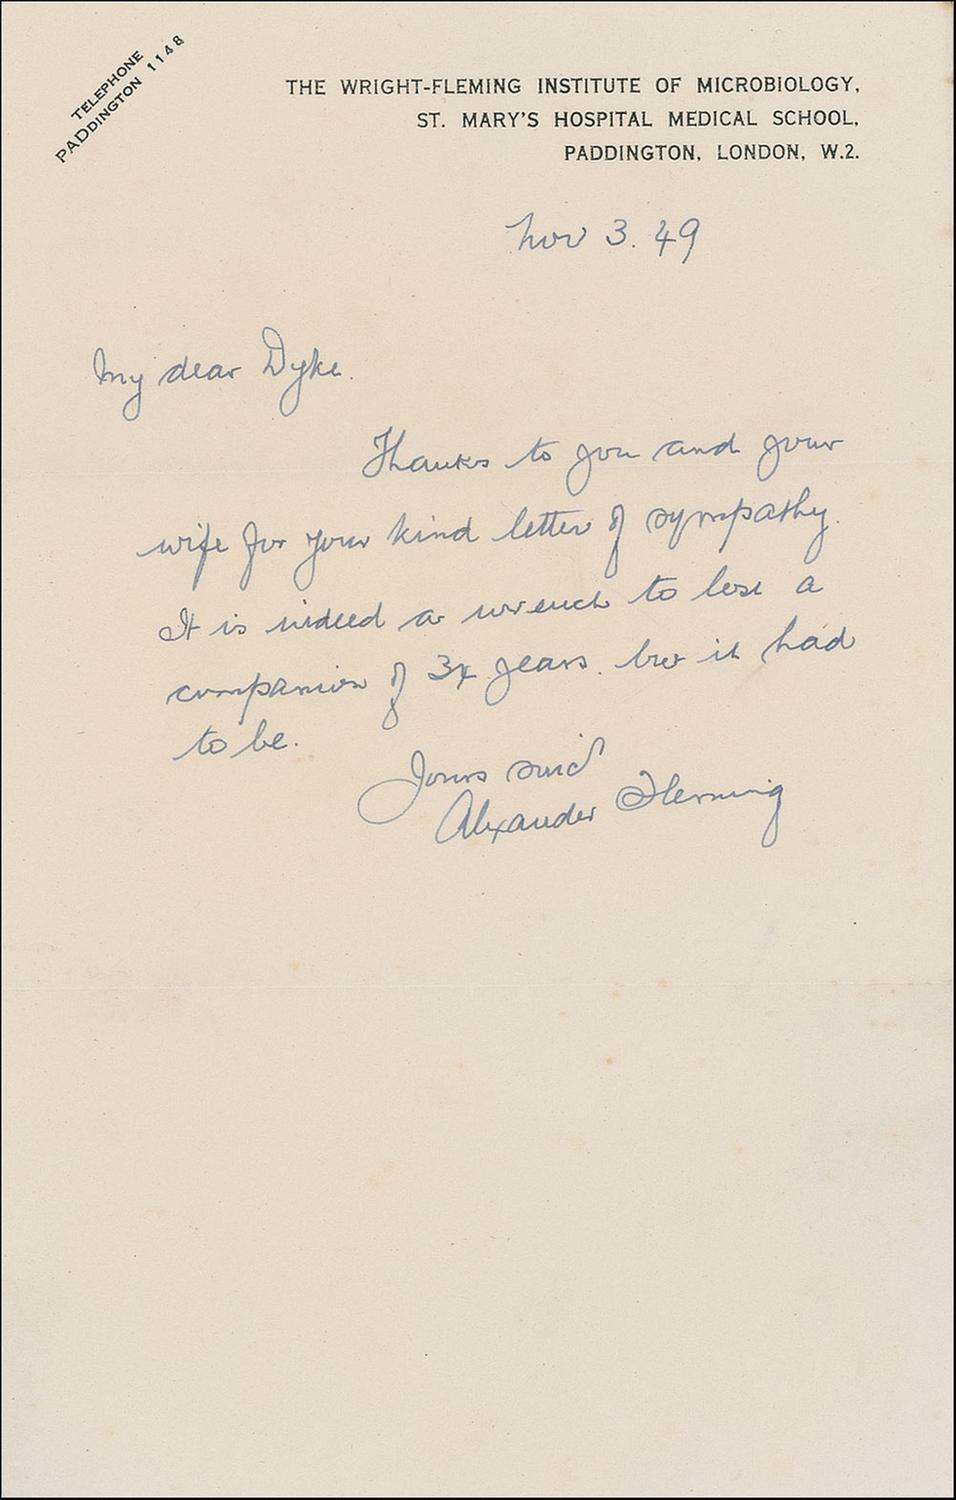 TELEPHONE
PADDINGTON 1148
THE WRIGHT-FLEMING INSTITUTE OF MICROBIOLOGY,
ST. MARY'S HOSPITAL MEDICAL SCHOOL,
PADDINGTON, LONDON, W.2.
Nov 3. 49
My dear Dyke.
Thanks to you and your
wife for your kind letter of sympathy.
It is indeed a wrench to lose a
companion of 34 years. but it had
to be.
Yours
Alexander Fleming